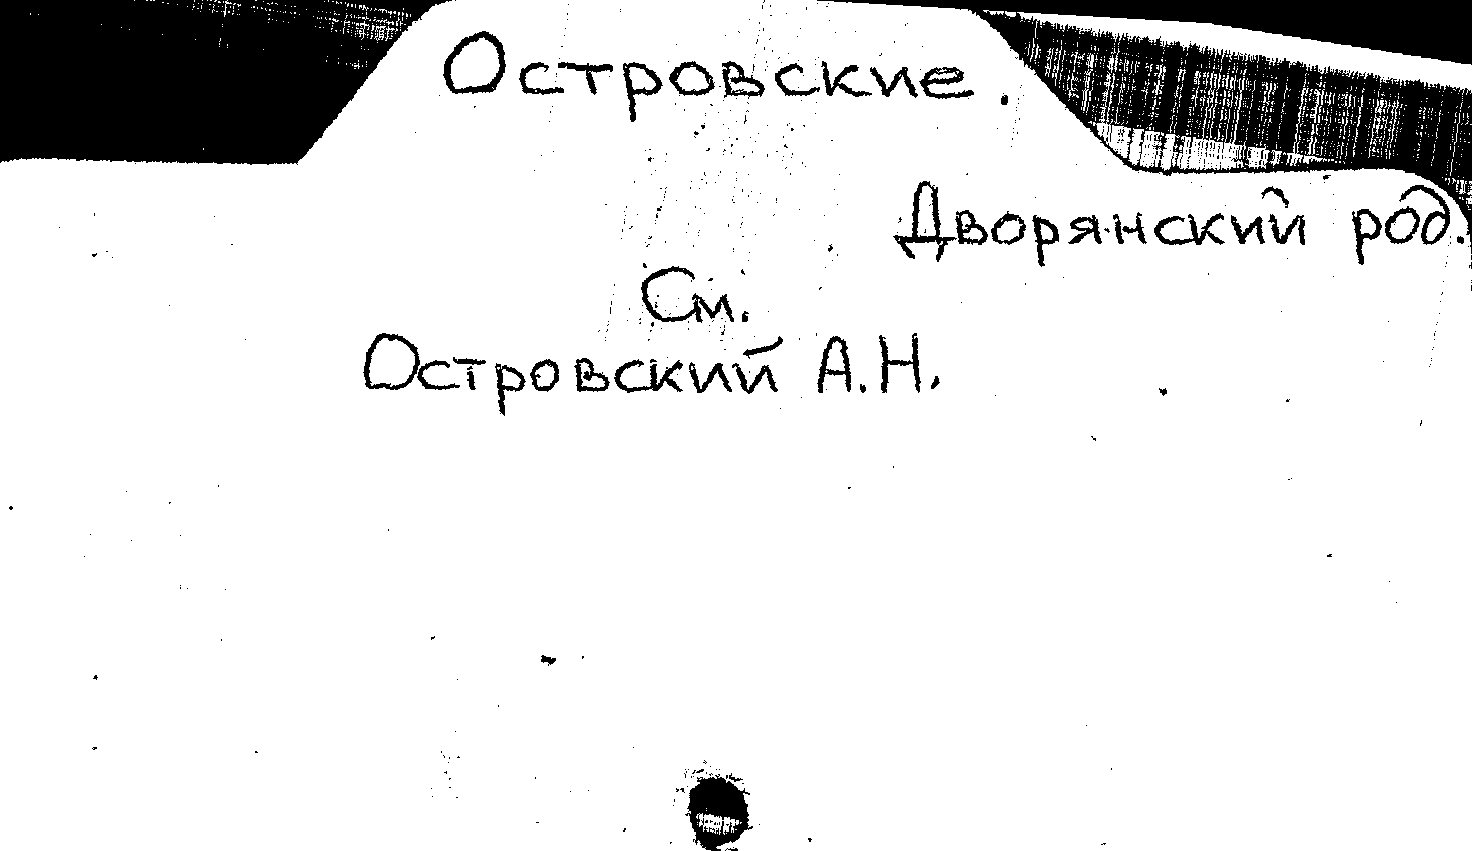 Островские.
Дворянский род.
См.
Островский А.Н.